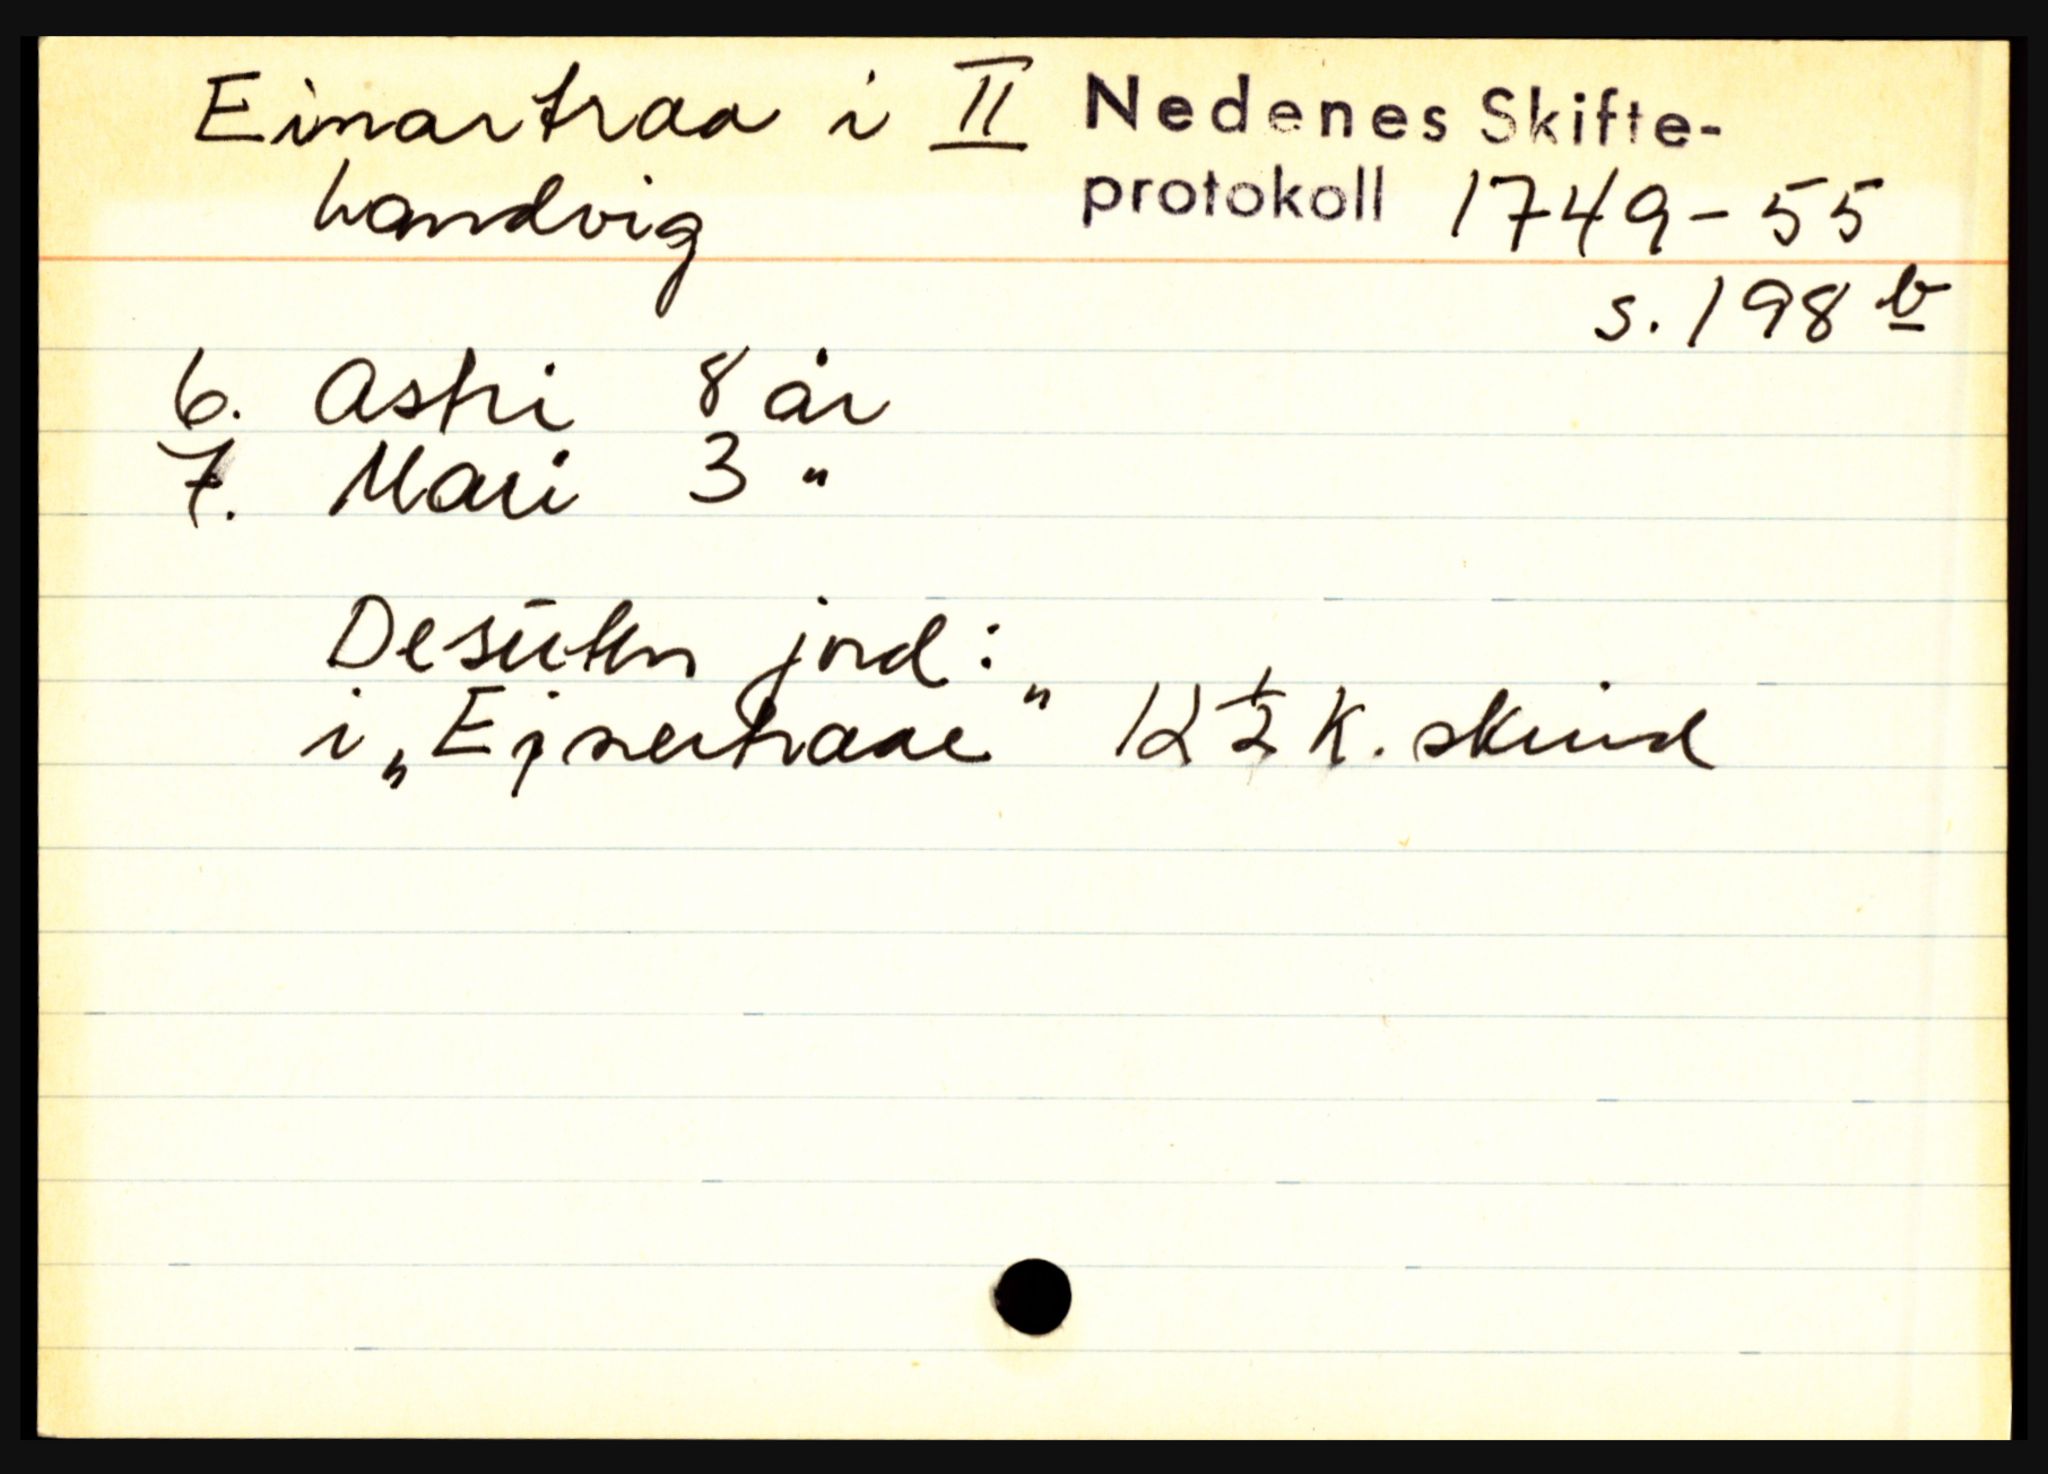 Einartraa i II Nedenes Skifte-
Landvig protokoll 1749-55
s. 198 b
6. Astri 8 år
7. Mari 3 "
Desuten jord:
i „Ejnertraae" 12 1/2 K. skind